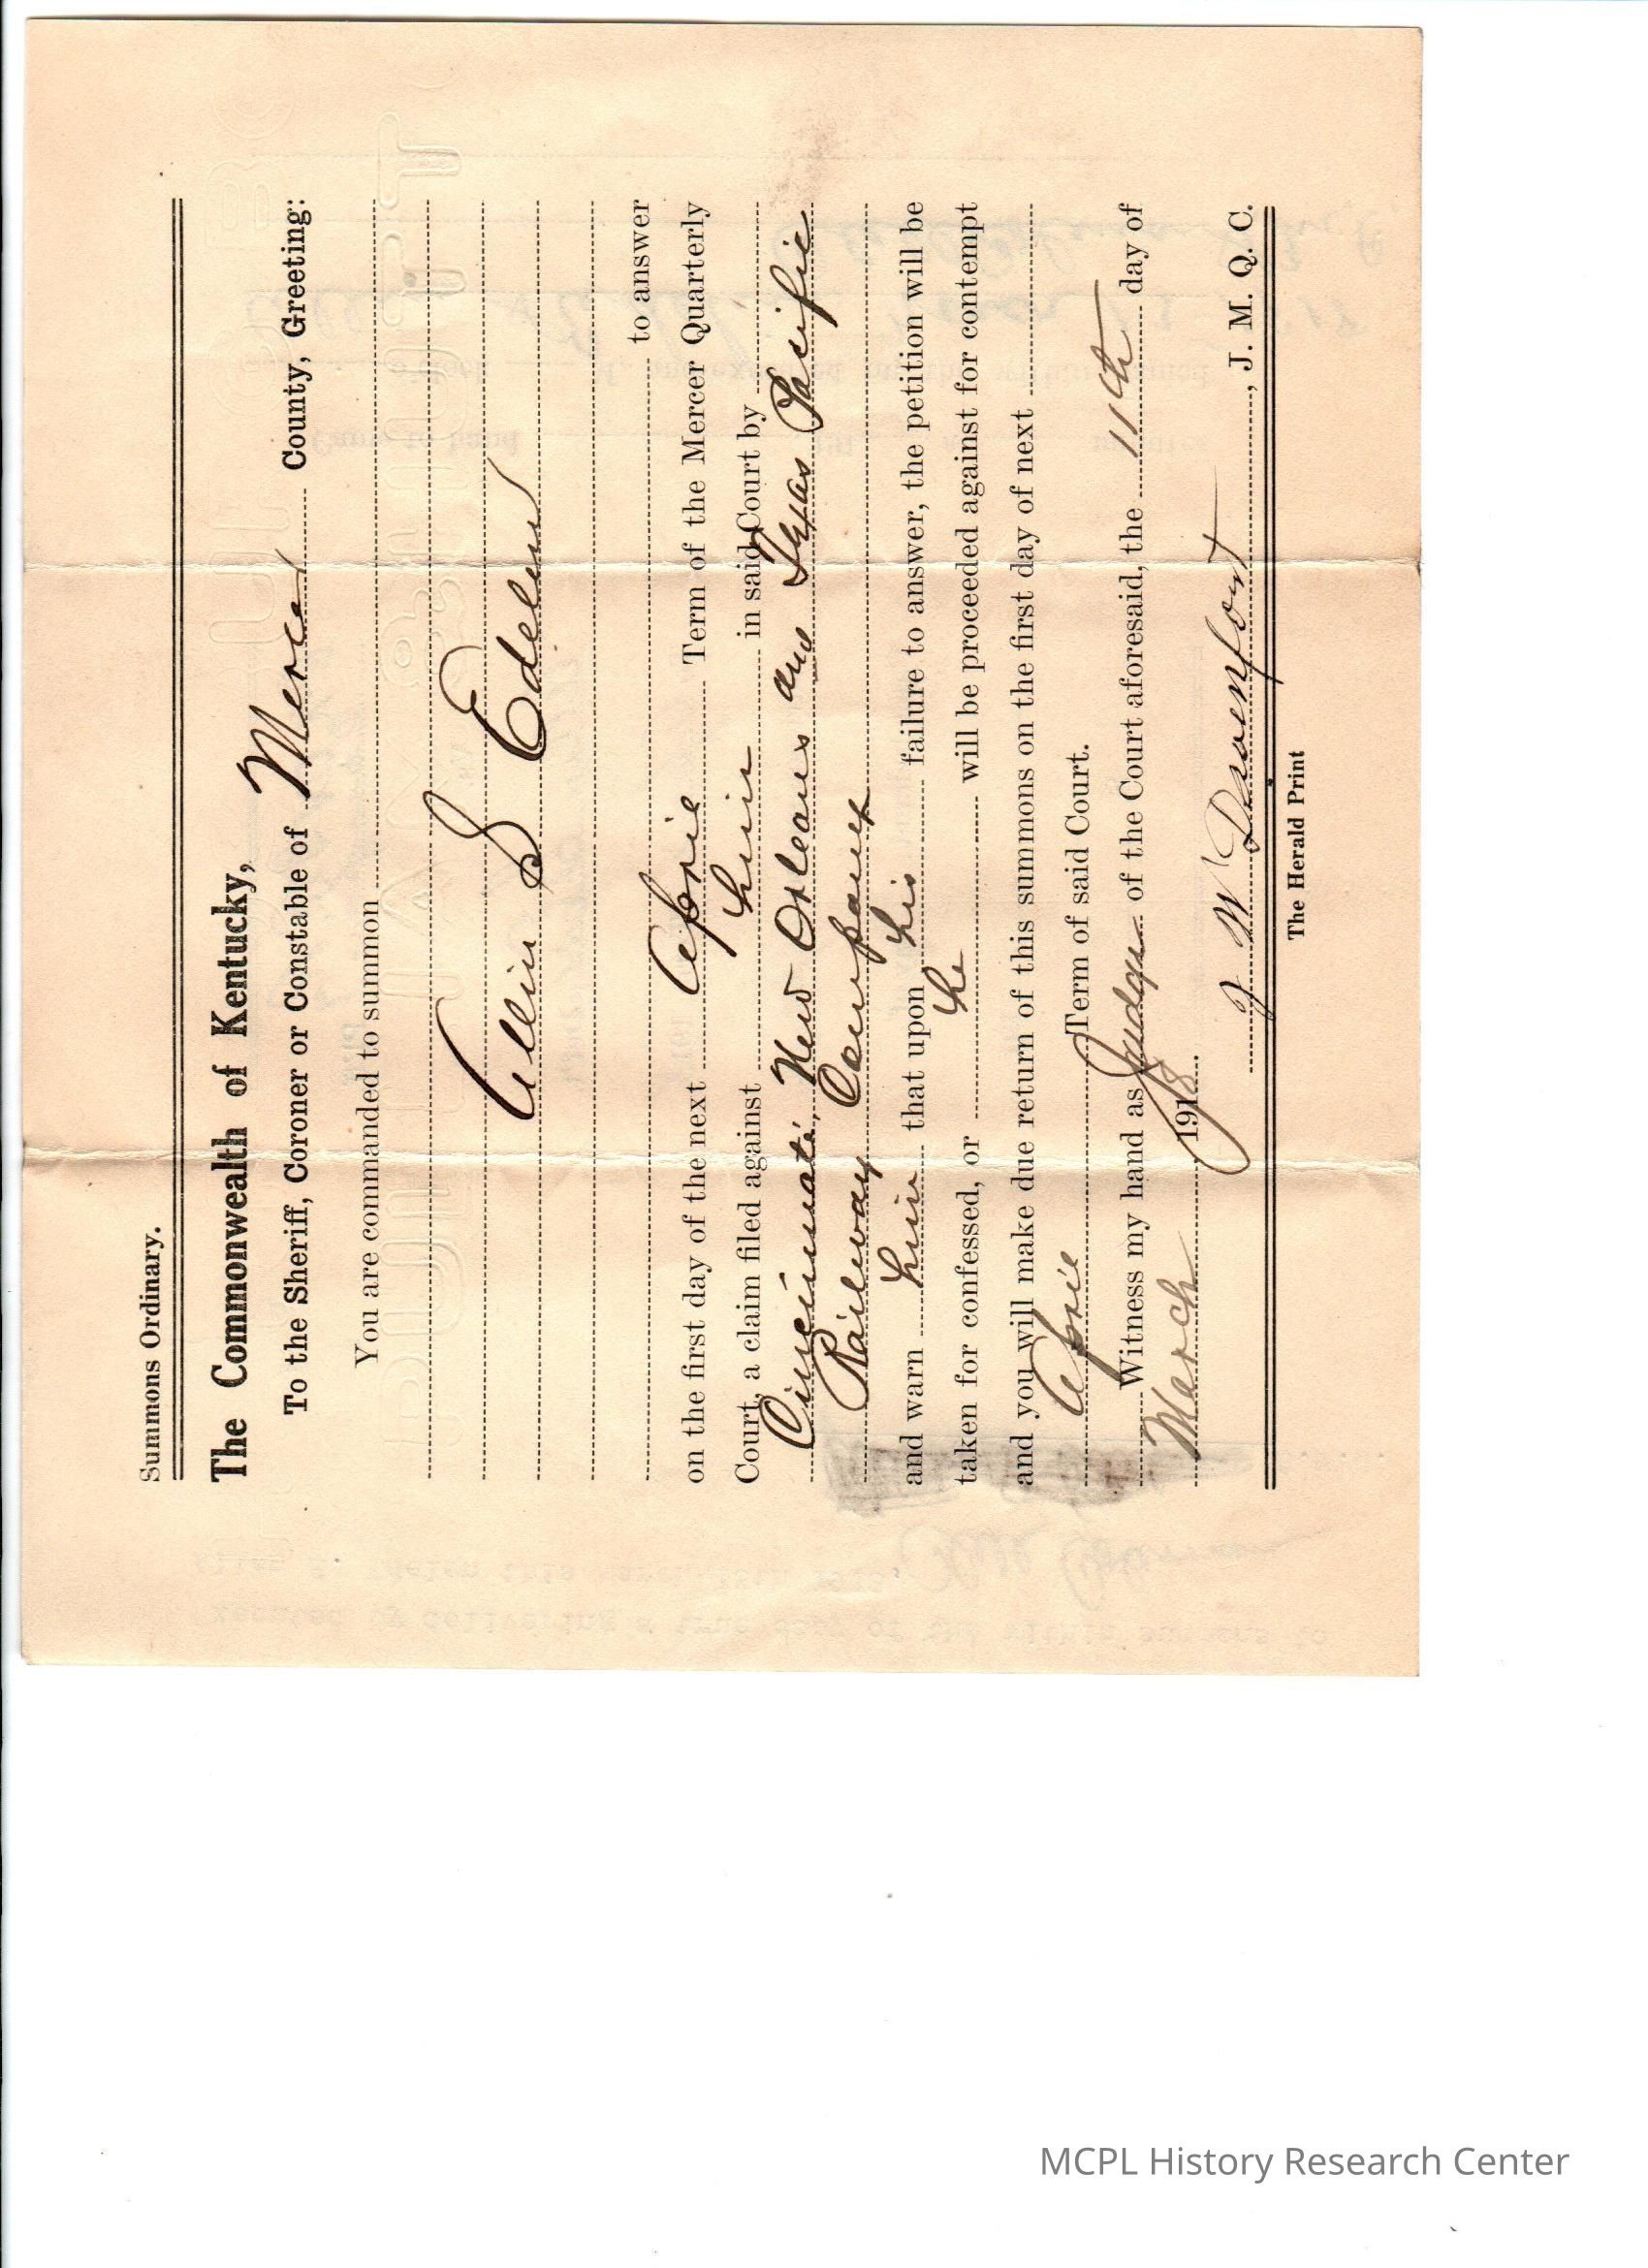 Summons Ordinary.
The Commonwealth of Kentucky,
To the Sheriff, Coroner or Constable of Mercer County, Greeting:
You are commanded to summon
Allin S Edelen
to answer
on the first day of the next April Term of the Mercer Quarterly
Court, a claim filed against him in said Court by
Cincinnati, New Orleans and Texas Pacific
Railway Company
and warn him that upon his failure to answer, the petition will be
taken for confessed, or he will be proceeded against for contempt
and you will make due return of this summons on the first day of next
April Term of said Court.
Witness my hand as Judge of the Court aforesaid, the 11th day of
March 1918.
J W Davenport, J. M. Q. C.
The Herald Print
MCPL History Research Center